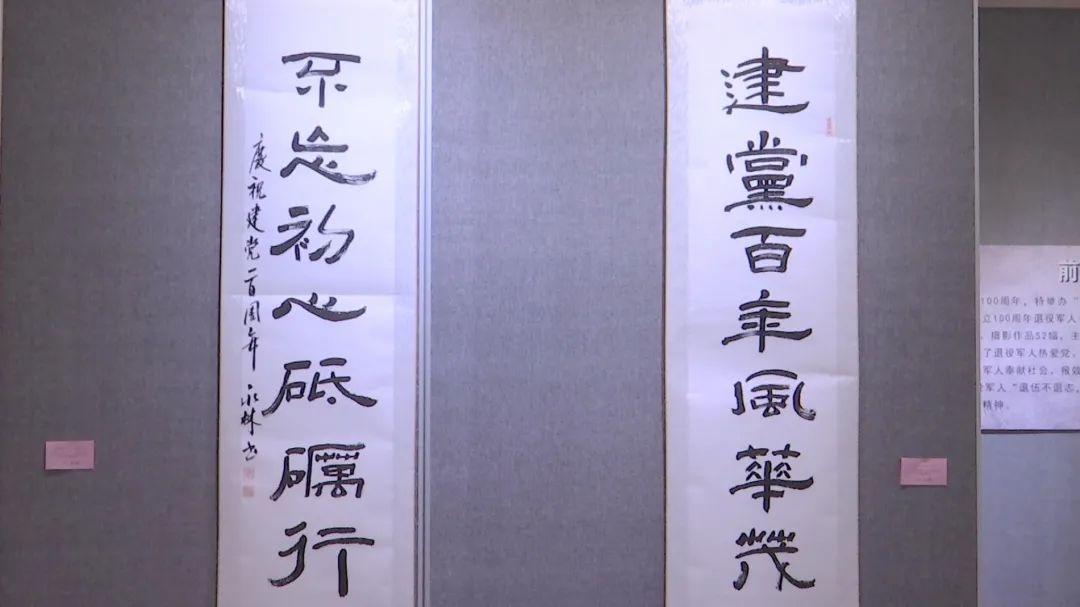 建黨百年風華茂
不忘初心砥礪行
庆祝建党一百周年 永林书
前
100周年，特举办“
立100周年退役军人
、摄影作品52幅，主
了退役军人热爱党，
军人奉献社会、报效
军人“退伍不退志，
精神。